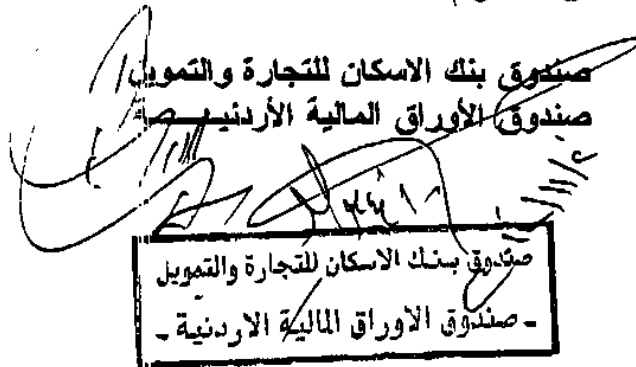 صندوق بنك الاسكان للتجارة والتمويل/
صندوق الأوراق المالية الأردنيـــــة
صندوق بنك الاسكان للتجارة والتمويل
- صندوق الاوراق المالية الاردنية -